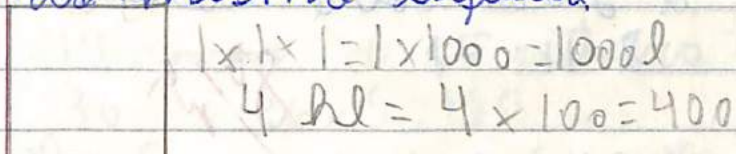 1x1x1=1x1000=1000l
4 hl=4x100=400